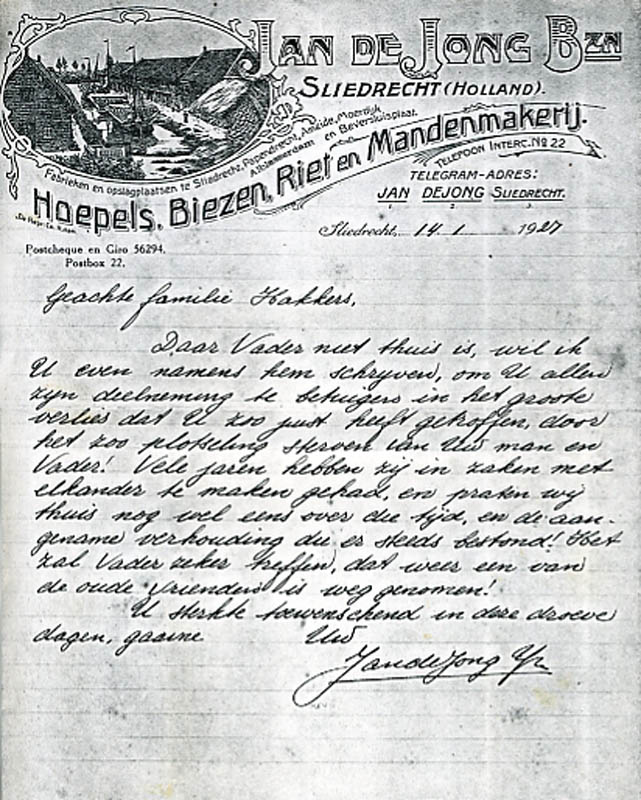 JAN DE JONG BZN
SLIEDRECHT (HOLLAND).
Fabrieken en opslagplaatsen te Sliedrecht, Papendrecht, Ameide, Moerdijk,
Alblasserdam en Beversluisplaat.
Hoepels, Biezen, Riet en Mandenmakerij.
TELEFOON INTERC. No 22
TELEGRAM-ADRES:
JAN DEJONG SLIEDRECHT.
Postcheque en Giro 56294.
Postbox 22.
Sliedrecht, 14 1 1927
Geachte familie Hakkers,
Daar Vader niet thuis is, wil ik
U even namens hem schryven, om U allen
zyn deelneming te betuigen in het groote
verlies dat U zoo just heeft getroffen, door
het zoo plotseling sterven van Uw man en
Vader! Vele jaren hebben zij in zaken met
elkander te maken gehad, en praten wy
thuis nog wel eens over die tijd, en de aan-
gename verhouding die er steeds bestond! Het
zal Vader zeker treffen, dat weer een van
de oude vrienden is weg genomen!
U sterkte toewenschend in deze droeve
dagen, gaarne Uw
Jan de Jong